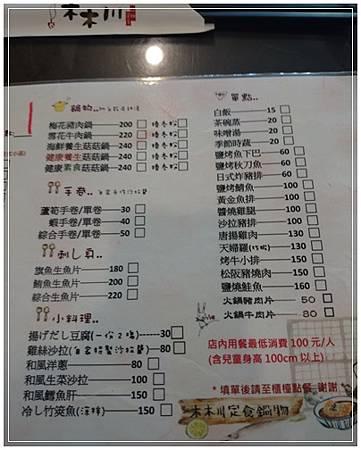 木木川
鍋物..
梅花豬肉鍋 200
雪花牛肉鍋 220
海鮮野生菇菇鍋 240
健康養生菇菇鍋 240
健康素食菇菇鍋 240
手卷..
蘆筍手卷/單卷 30
蝦手卷/單卷 40
綜合手卷/單卷 50
刺し身..
旗魚生魚片 180
鮪魚生魚片 220
綜合生魚片 220
小料理..
揚げだし豆腐(一份2塊) 30
雞絲沙拉(自家特製沙拉醬) 80
和風洋蔥 80
和風生菜沙拉 80
和風鱈魚肝 150
冷し竹筴魚 150
單點..
白飯 15
茶碗蒸 20
味噌湯 20
季節時蔬 50
鹽烤魚下巴 60
鹽烤秋刀魚 60
日式炸豬排 60
鹽烤鯖魚 100
黃金魚排 100
醬燒雞腿 100
沙拉豬排 100
唐揚雞肉 130
天婦羅 130
烤牛小排 150
松阪豬燒肉 150
鹽燒鮭魚 160
火鍋豬肉片 50
火鍋牛肉片 80
店內用餐最低消費 100 元/人
(含兒童身高 100cm 以上)
* 填單後請至櫃檯點餐 謝謝 *
木木川定食鍋物